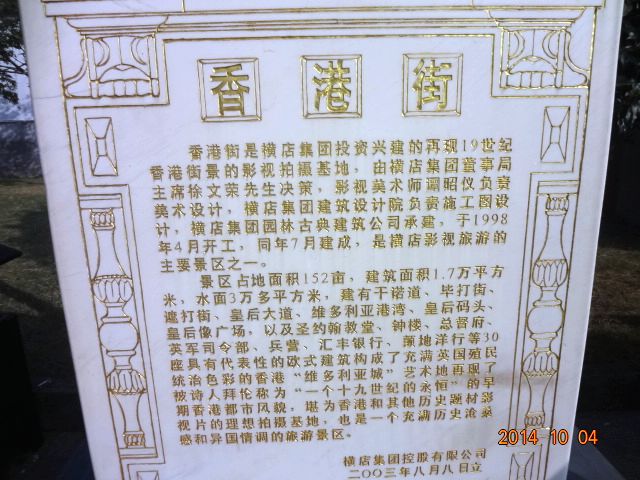 香港街
香港街是横店集团投资兴建的再现19世纪
香港街景的影视拍摄基地，由横店集团董事局
主席徐文荣先生决策，影视美术师谭昭仪负责
美术设计，横店集团建筑设计院负责施工图设
计，横店集团园林古典建筑公司承建，于1998
年4月开工，同年7月建成，是横店影视旅游的
主要景区之一。
景区占地面积152亩，建筑面积1.7万平方
米，水面3万多平方米，建有干诺道、毕打街、
遮打街、皇后大道、维多利亚港湾、皇后码头、
皇后像广场，以及圣约翰教堂、钟楼、总督府、
英军司令部、兵营、汇丰银行、箫地洋行等30
座具有代表性的欧式建筑构成了充满英国殖民
统治色彩的香港“维多利亚城”艺术地再现了
被诗人拜伦称为“一个十九世纪的永恒”的早
期香港都市风貌，堪为香港和其他历史题材影
视片的理想拍摄基地，也是一个充满历史沧桑
感和异国情调的旅游景区。
横店集团控股有限公司
二〇〇三年八月八日立
2014 10 04